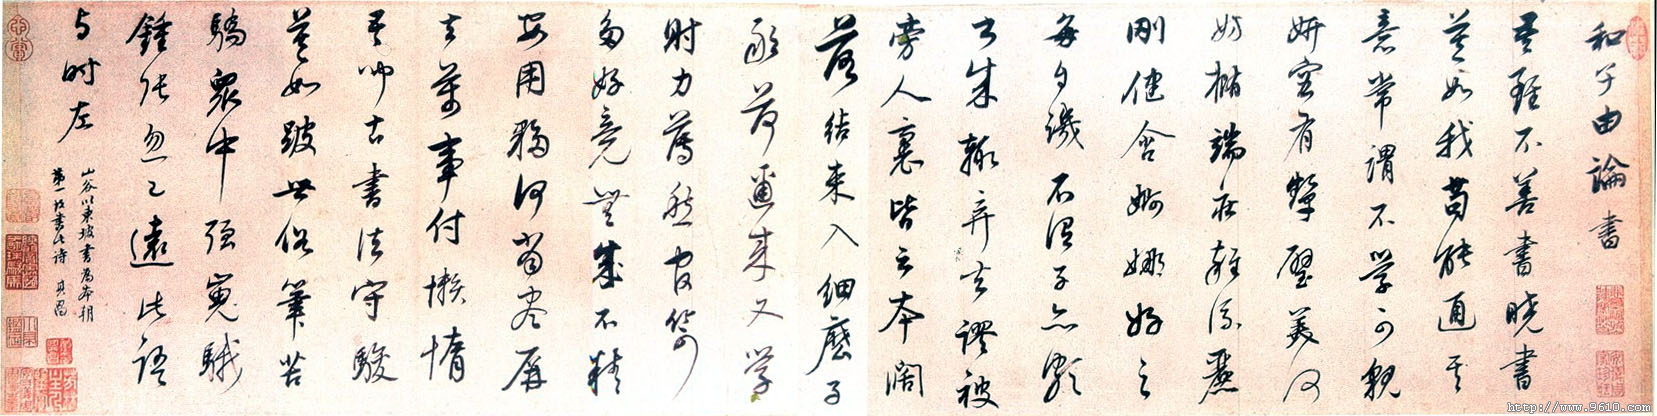 和子由論書
吾雖不善書曉書
莫如我苟能通其
意常謂不學可貌
妍容有顰璧美何
妨橢端莊雜流麗
剛健含婀娜好之
每自譏不謂子亦頗
書成輒棄去謬被
旁人裹皆云本闊
落結束入細麼子
敢荷邇來又學
射力薄愁官笴
多好竟無成不精
安用夥何當盡屏
去萬事付懶惰
吾聞古書法守駿
莫如跛世俗筆苦
驕衆中強嵬騀
鍾張忽已遠此語
与時左
山谷以東坡書為本朝
第一故書此詩 其昌
http://www.9610.com